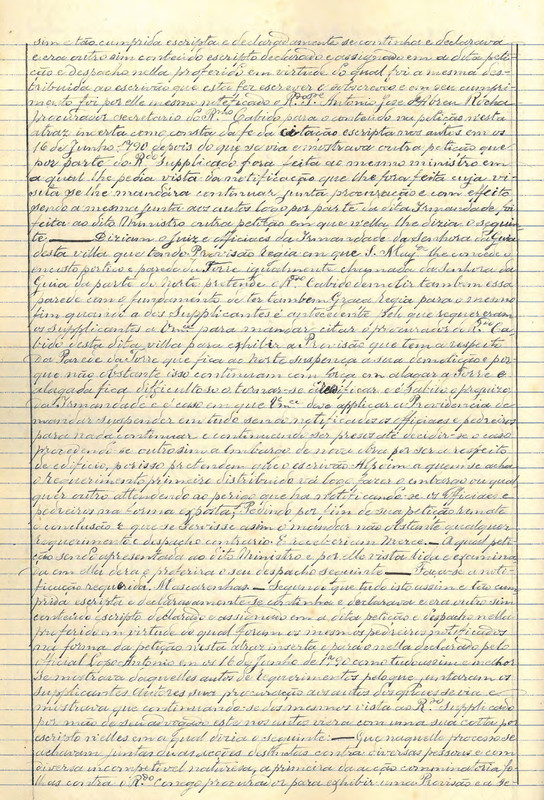 sim e tão cumprida escripta e declaradamente se continha e declarava
e era outro sim conteúdo escripto declarado e assignado em a dita peti-
ção e despacho nella proferido em virtude do qual foi a mesma des-
tribuida ao escrivão que esta fez escrever e sobscreveo e em seu cumpri-
mento foi por elle mesmo noteficado o R. Antonio José de Abreu Rocha
procurador secretario do Rmo Cabido para o conteúdo na petição nesta
atraz incerta como consta da fe da citação escripta nos autos em os
16 de Junho 1790 depois do que se via e mostrava outra petição que
por parte do Rdo Supplicado fora feita ao mesmo ministro em
a qual lhe pedia vista da notificação que lhe fora feita cuja vi-
sta se lhe mandara continuar junta procuração e com effeito
sendo a mesma junta aos autos logo por parte da dita Irmandade foi
feita ao dito Ministro outra petição em que n'ella lhe dizia o seguin-
te — Diziam o Juiz e officiaes da Irmandade da Senhora da Guia
desta villa que tendo Provisão regia em que S. Mage lhe concede o
encosto portico e parede da Torre igualmente chamada da Senhora da
Guia da parte do Norte pretende o Rdo Cabido demolir tambem essa
parede com o fundamento de ter tambem Graca regia para o mesmo
fim quando a dos Supplicantes é antecedente Pelo que requereram
os supplicantes a Vmce para mandar citar o procurador do Rdo Ca-
bido desta dita villa para exhibir a Provisão que tem a respeito
da Parede da Torre que fica ao Norte suspença a sua demolição e por
que não obstante isso continuaram com força em alagar a Torre e
alagada fica dificultoso o tornar-se a reedificar e é sabido o prejuizo
da Irmandade e é caso em que Vmce deve applicar a Providencia de
mandar suspender em tudo sendo notificados os officiaes e pedreiros
para nada continuar e continuando ser presos até decidir-se o caso
procedendo se outro sim a Embargo de nova obra por ser a respeito
de edificio, por isso pretendem que o escrivão Alvoim a quem se acha
o requerimento primeiro distribuido vá logo fazer o embargo ou qual
quer outro attendendo ao perigo que ha notificando-se os officiaes e
pedreiros na forma exposta, Pedindo por fim de sua petição remate
e conclusão e que se servisse assim o mandar não obstante qualquer
requerimento e despacho contrario E receberiam Merce. — A qual peti-
ção sendo apresentada ao dito Ministro e por elle vista lida e examina-
da em ella dera e proferira o seu despacho seguinte — Faça-se a noti-
ficação requerida. Mascarenhas. — Segundo que tudo isto assim e tão cum-
prida escripta e declaradamente se continha e declarava e era outro sim
conteúdo escripto declarado e assignado em a dita petição e despacho nella
proferido em virtude do qual foram os mesmos pedreiros notificados
na forma da petição nesta atraz incerta e para o nella declarado pelo
official Caso Antonio em os 16 de Junho de 1790 como tudo assim e melhor
se mostrava daquelles autos de requerimentos pelo que, juntaram os
supplicantes authores sua procuração aos autos dos quaes se via e
mostrava que continuando-se dos mesmos vista ao Rdo Supplicado
por mão de seu advogado este nos autos viera com uma sua cotta por
escripto n'elles em a qual dizia o seguinte: — Que naquelle processo se
achavam juntas duas acções destintas contra diversas pessoas e com
diversa incompetivel naturesa, a primeira da acção comminatoria fe-
lhas contra o Rdo Conego procurador para exhibir uma Provisão ea se-